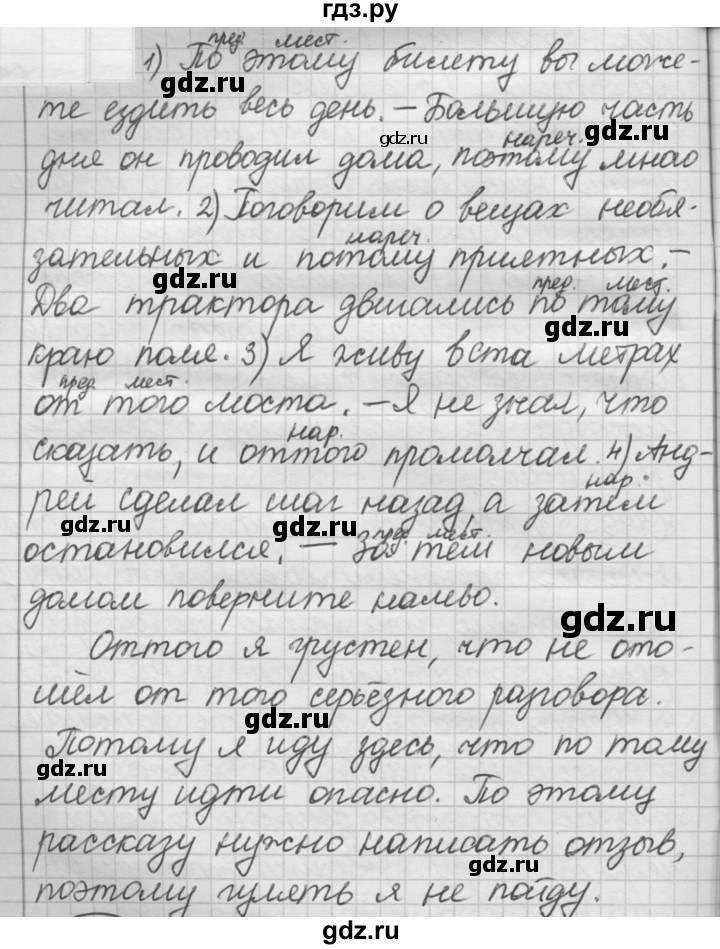 гдз.ру
пред. мест.
1) По этому билету вы може-
те ездить весь день. – Большую часть
нареч.
дня он проводил дома, поэтому мнао
читал. 2) Поговорим о вещах необя-
нареч.
зательных и потому приятных. –
пред. мест.
Два трактора двигались по тому
краю поля. 3) Я живу в ста метрах
пред. мест.
от того моста. – Я не знал, что
нар.
сказать, и оттого промолчал. 4) Анд-
нар.
рей сделал шаг назад, а затем
пред. мест.
остановился. – За тем новым
домом поверните налево.
Оттого я грустен, что не ото-
шёл от того серьёзного разговора.
Потому я иду здесь, что по тому
месту идти опасно. По этому
рассказу нужно написать отзыв,
поэтому гулять я не пойду.
gdz.ru
gdz.ru
gdz.ru
gdz.ru
gdz.ru
gdz.ru
gdz.ru
gdz.ru
gdz.ru
gdz.ru
gdz.ru
gdz.ru
gdz.ru
gdz.ru